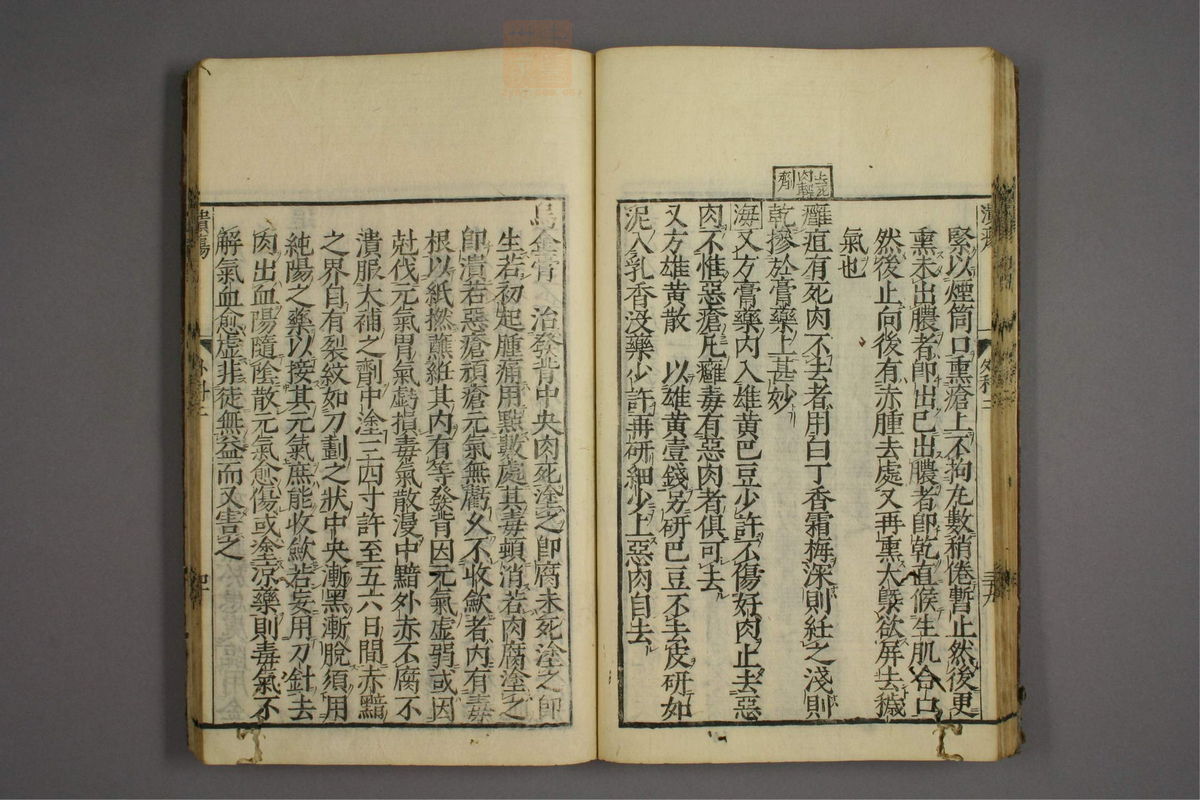 緊以煙筒口熏瘡上不拘尤數稍倦暫止然後更
熏未出膿者即出已出膿者即乾直候生肌合口
然後止向後有赤腫去處又再熏大槩欲屏去穢
氣也
癰疽有死肉不去者用白丁香霜梅深則紝之淺則
乾摻於膏藥上甚妙
海又方膏藥內入雄黃巴豆少許不傷好肉止去惡
肉不惟惡瘡凡癰毒有惡肉者俱可去
又方雄黃散 以雄黃壹錢另研巴豆不去皮研如
泥入乳香沒藥少許再研細少上惡肉自去
外科二
三十九
烏金膏 治發背中央肉死塗之即腐未死塗之即
生若初起腫痛用點數處其毒頓消若肉腐塗之
即潰若惡瘡頑瘡元氣無虧久不收斂者內有毒
根以紙撚蘸紝其內有等發背因元氣虛弱或因
尅伐元氣胃氣虧損毒氣散漫中黯外赤不腐不
潰服大補之劑中塗三四寸許至五六日間赤黯
之界自有裂紋如刀劃之狀中央漸黑漸脫須用
純陽之藥以接其元氣庶能收斂若妄用刀針去
肉出血陽隨陰散元氣愈傷或塗凉藥則毒氣不
解氣血愈虛非徒無益而又害之
潰瘍
外科二
四十